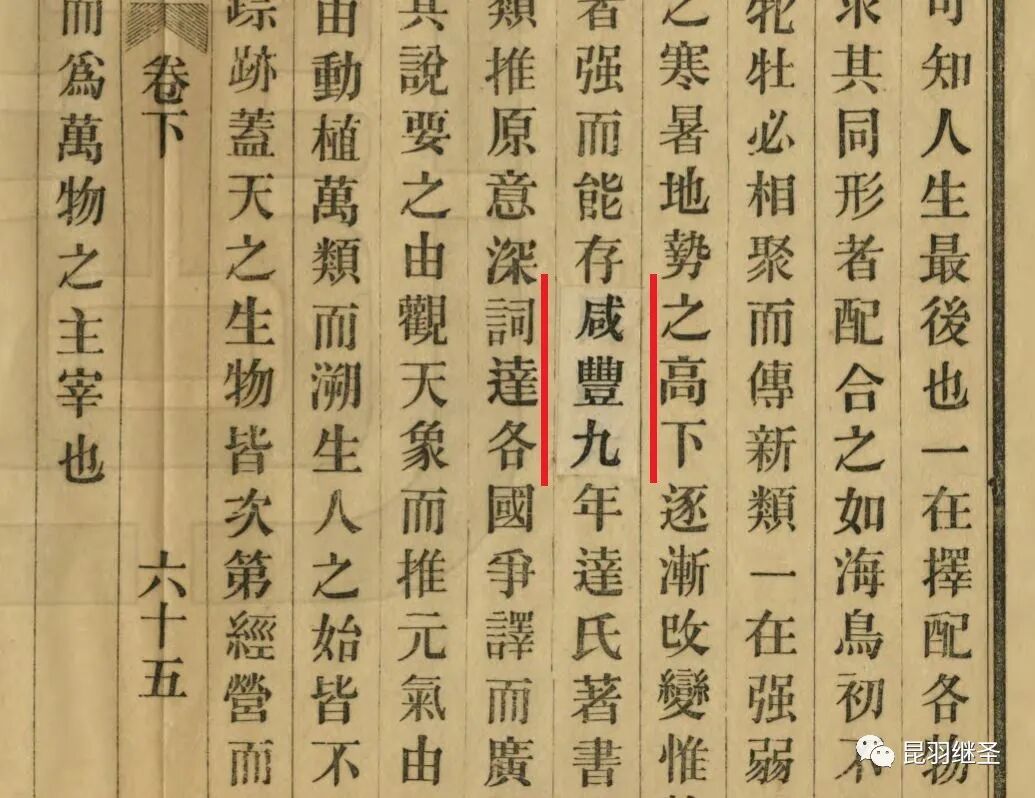 可知人生最後也一在擇配各物
求其同形者配合之如海鳥初不
牝牡必相聚而傳新類一在强弱
之寒暑地勢之高下逐漸改變惟
者强而能存咸豐九年達氏著書
類推原意深詞達各國爭譯而廣
其說要之由觀天象而推元氣由
由動植萬類而溯生人之始皆不
踪跡蓋天之生物皆次第經營而
卷下 六十五
而爲萬物之主宰也
昆羽继圣